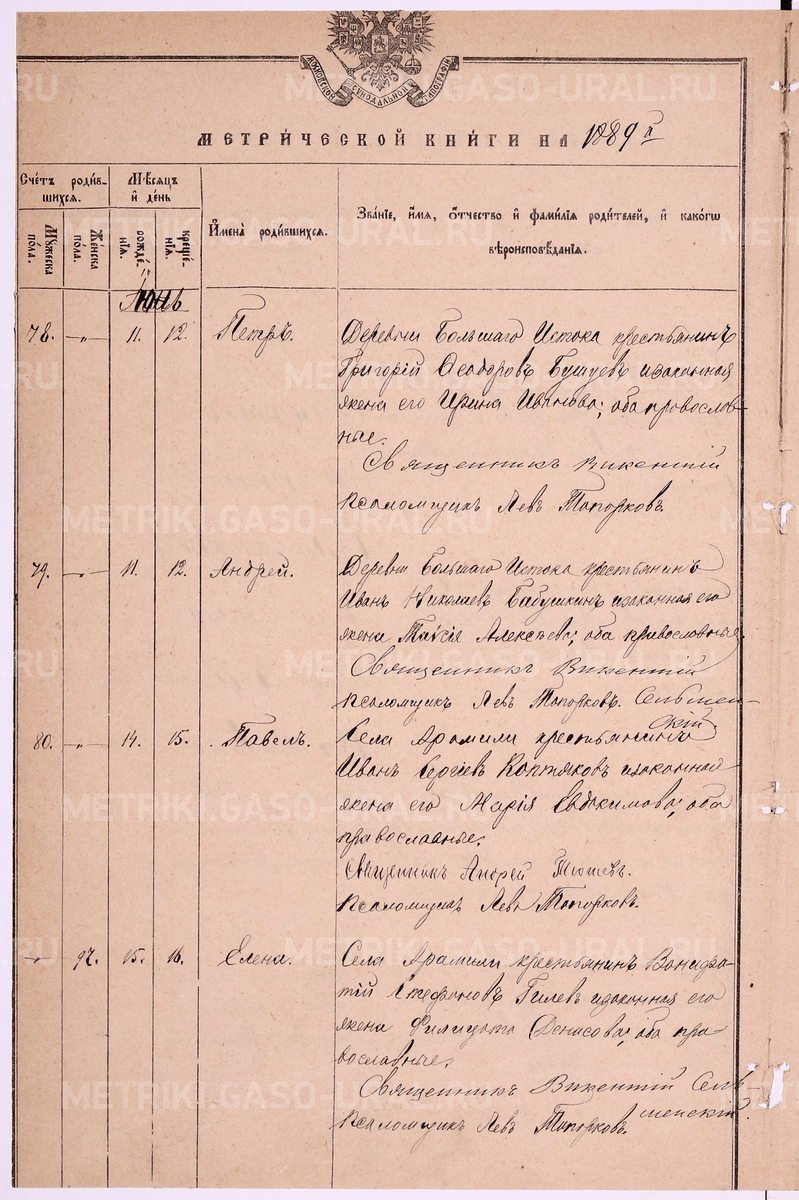 МОСКОВСКОЙ СѴНОДАЛЬНОЙ ТИПОГРАФІИ
МЕТРИ́ЧЕСКОЙ КНИ́ГИ НА 1889 г
Сче́тъ роди́в-
шихся.
Мꙋжеска
по́ла.
Же́нска
по́ла.
Мѣ́сяцъ
и҆ де́нь
рожде́-
нїѧ.
креще́-
нїѧ.
И҆мена̀ роди́вшихся.
Зва́нїе, и҆́мѧ, ѻ҆́тчество и҆ фами́лїѧ роди́телей, и҆ како́гѡ
вѣроисповѣ́данїѧ.
Іюнь
78. -„- 11. 12. Петръ. Деревни Большаго Истока крестьянинъ
Григорій Ѳеодоровъ Бушуевъ изаконная
жена его Ирина Иванова; оба провослов-
ные.
Священникъ Викентій
Псаломщикъ Левъ Топорковъ.
79. -„- 11. 12. Андрей. Деревни Большаго Истока крестьянинъ
Иванъ Николаевъ Бабушкинъ изаконная его
жена Таисія Алексѣева; оба православные.
Священникъ Викентій
Псаломщикъ Левъ Топорковъ. Сельмен-
скій.
80. -„- 14. 15. Павелъ. Села Арамили крестьянинъ
Иванъ Сергіевъ Коптяковъ изаконная
жена его Марія Евдокимова; оба
православные.
Священникъ Андрей
Псаломщикъ Левъ Топорковъ.
-„- 97. 15. 16. Елена. Села Арамили крестьянинъ Вонифа-
тій Стефановъ Гилевъ изаконная его
жена Фелицата Денисова; оба пра-
вославные.
Священникъ Викентій Сель-
менскій
Псаломщикъ Левъ Топорковъ.
METRIKI.GASO-URAL.RU